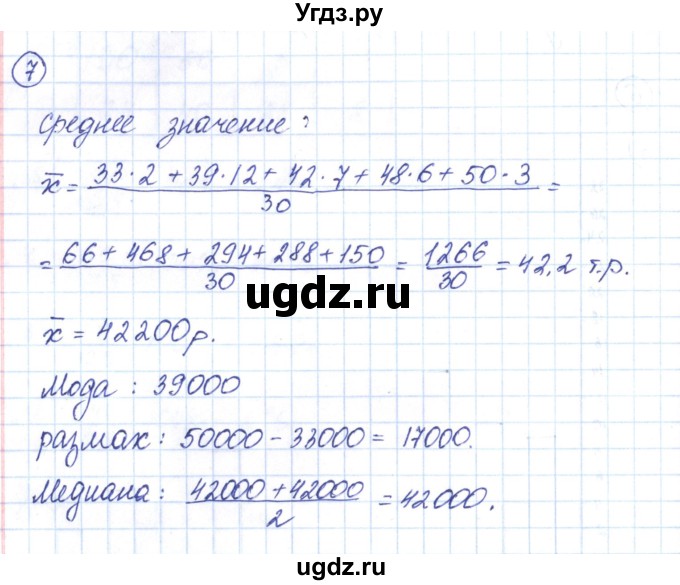 Угдз.ру
7
Среднее значение:
x̄ = (33·2 + 39·12 + 42·7 + 48·6 + 50·3)/30 =
= (66 + 468 + 294 + 288 + 150)/30 = 1266/30 = 42,2 т.р.
ugdz.ru
x̄ = 42200р.
Мода : 39000
размах : 50000 - 33000 = 17000.
Медиана : (42000 + 42000)/2 = 42000.
ugdz.ru
ugdz.ru